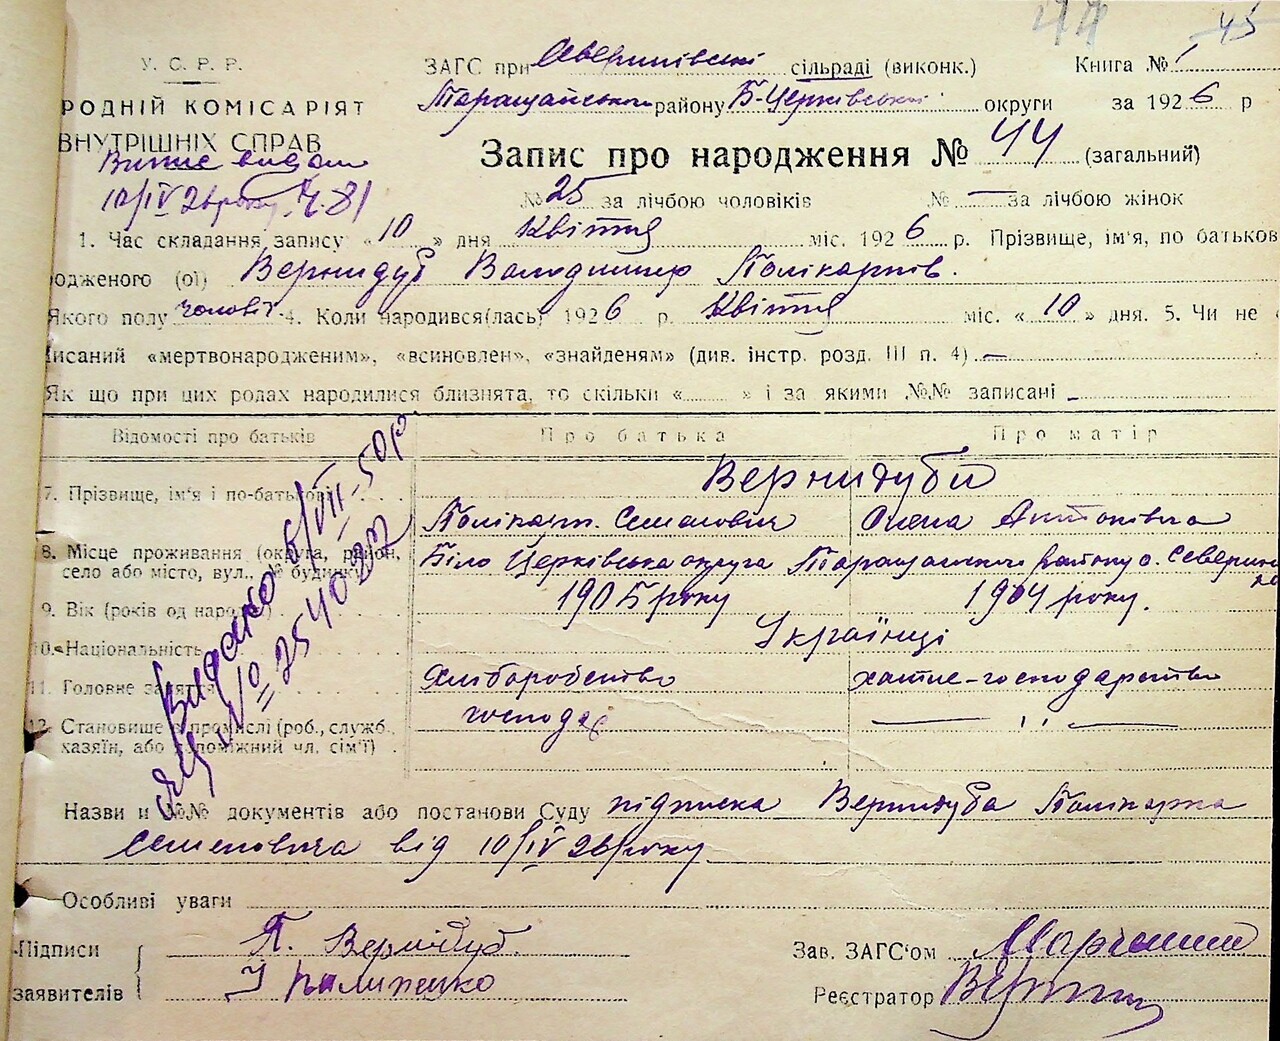 44 45
У. С. Р. Р.
ЗАГС при Северинівські сільраді (виконк.) Книга № 1
РОДНІЙ КОМІСАРІЯТ
Таращанського району Б-Церківської округи за 1926 р
ВНУТРІШНІХ СПРАВ
Запис про народження № 44 (загальний)
Витяг видан
10/IV 26 року Ч. 81
№ 25 за лічбою чоловіків № — за лічбою жінок
1. Час складання запису «10» дня Квітня міс. 1926 р. Прізвище, ім'я, по батьков
родженого (ої) Вернидуб Володимир Полікарпів.
Якого полу чолові 4. Коли народився(лась) 1926 р. Квітня міс. «10» дня. 5. Чи не
писаний «мертвонародженим», «всиновлен», «знайденям» (див. інстр. розд. III п. 4) —
Як що при цих родах народилися близнята, то скільки « » і за якими №№ записані
Відомості про батьків Про батька Про матір
7. Прізвище, ім'я і по-батькові
Вернидуби
Полікарп. Семенович Олена Антонівна
8. Місце проживання (округа, район, село або місто, вул., № будинку)
Біло Церківська округа Таращанського району с. Северин
9. Вік (років од народж.) 1905 року 1904 року.
10. Національність Українці
11. Головне заняття Хліборобство хатнє-господарство
12. Становище в промислі (роб., служб., хазяїн, або допоміжний чл. сім'ї)
господар — '' —
Видано 6/VII-50р
№ 254022
Назви и №№ документів або постанови Суду підписка Вернидуба Полікарпа
Семеновича від 10/IV 26 року
Особливі уваги
Підписи заявителів
П. Вернидуб.
Зав. ЗАГС'ом
Реєстратор